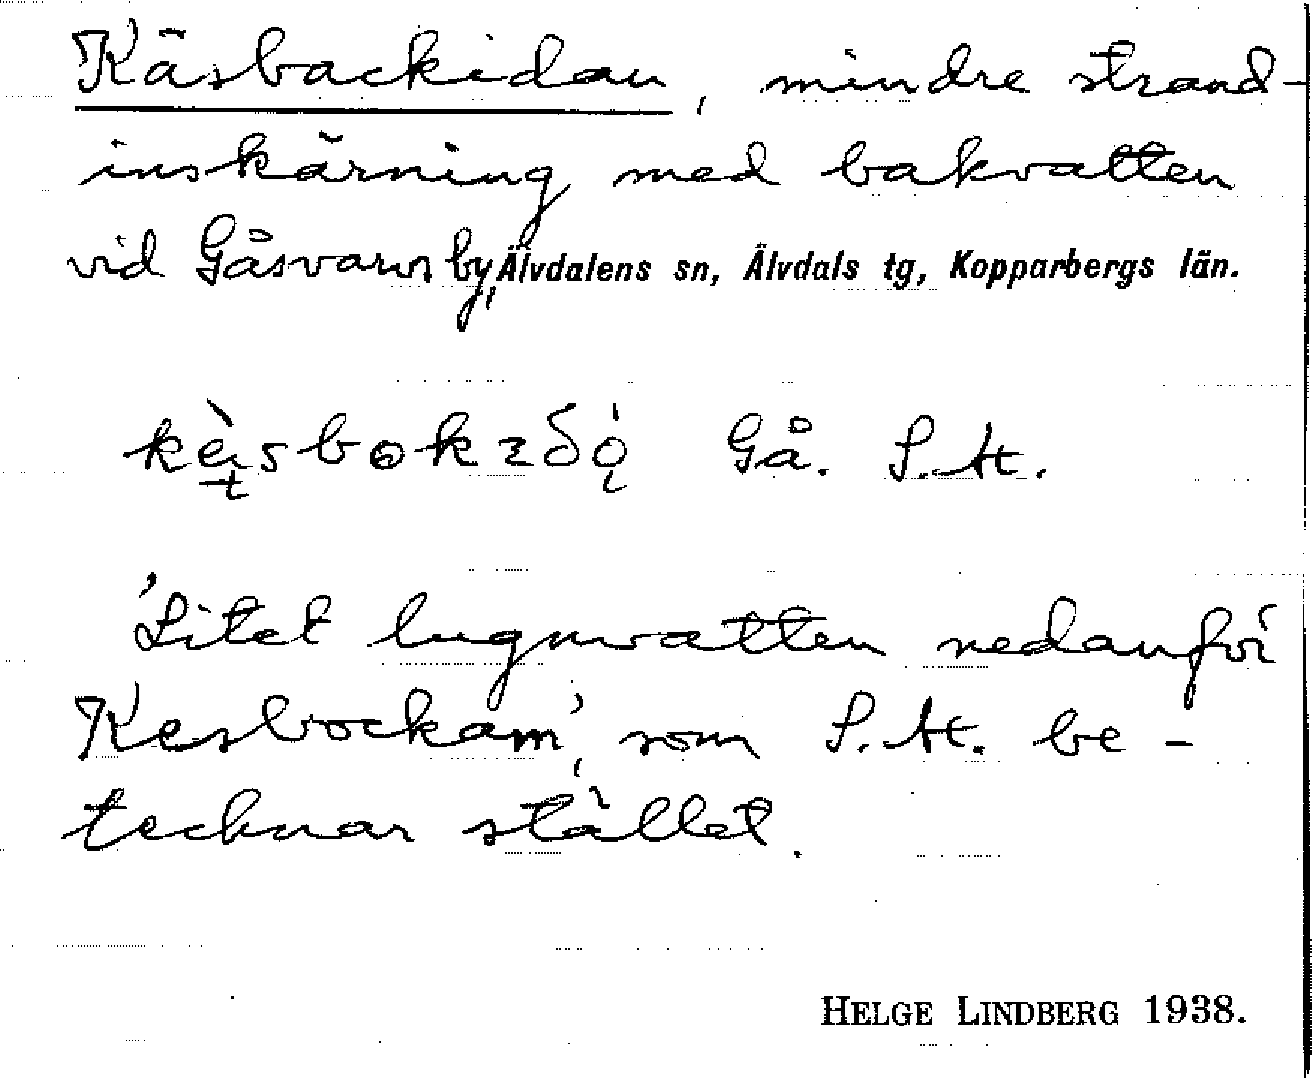 Käsbackidan, mindre strand-
inskärning med bakvatten
vid Gåsvarvs by, Älvdalens sn, Älvdals tg, Kopparbergs län.
Gå. S.H.
'Litet lugnvatten nedanför
Kesbockam', som S.H. be-
tecknar stället.
HELGE LINDBERG 1938.